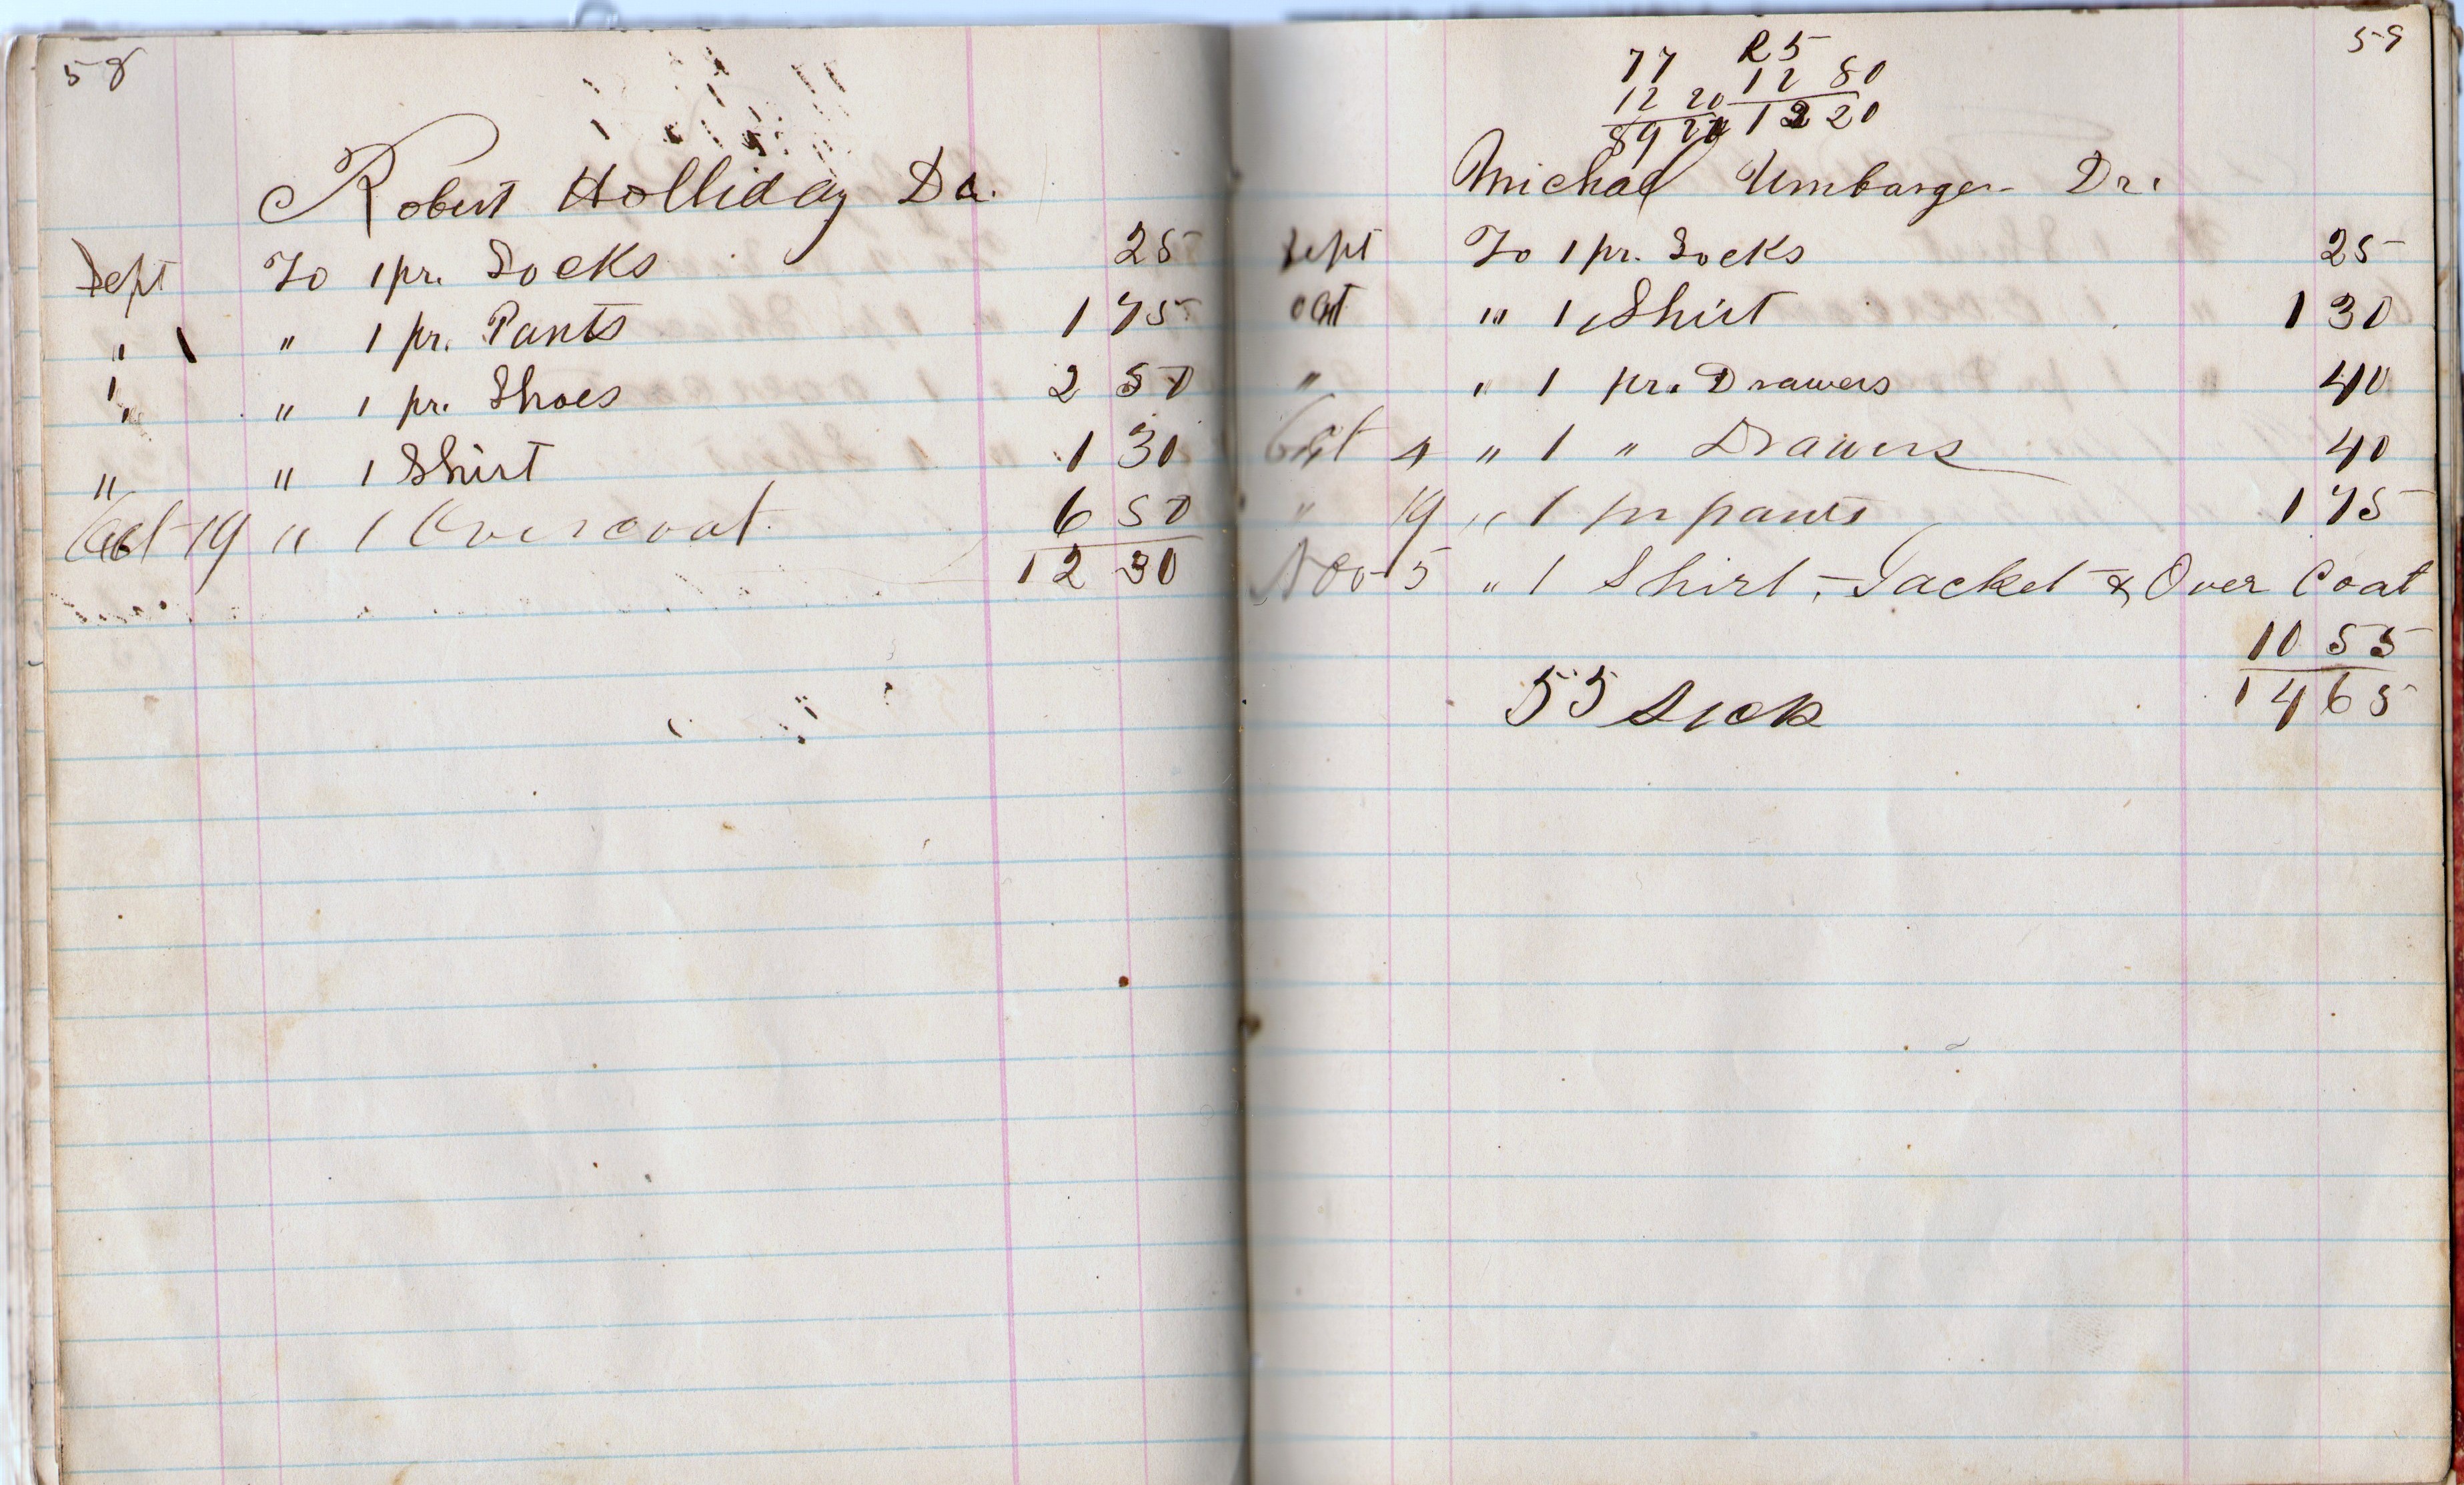 58
Robert Holliday Dr.
Sept To 1 pr. Socks 25
" 1 " 1 pr. Pants 1 75
" " 1 pr. Shoes 2 50
" " 1 Shirt 1 30
Oct 19 " 1 Overcoat 6 50
12 30
59
77 25
12 20 12 80
89 20 12 20
Michael Umbarger Dr.
Sept To 1 pr. Socks 25
Oct " 1 Shirt 1 30
" " 1 pr. Drawers 40
Oct 4 " 1 " Drawers 40
" 19 " 1 pr pants 1 75
Nov 5 " 1 Shirt, Jacket & Over Coat
10 55
14 65
55 Sick